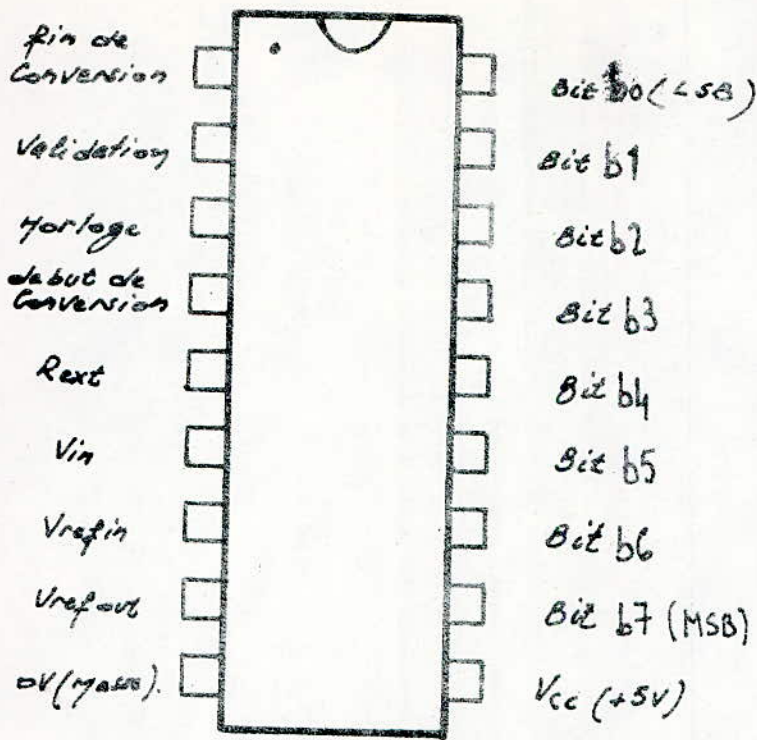 fin de
Conversion
Validation
Horloge
debut de
Conversion
Rext
Vin
Vrefin
Vrefout
OV (Masse).
Bit b0 (LSB)
Bit b1
Bit b2
Bit b3
Bit b4
Bit b5
Bit b6
Bit b7 (MSB)
Vcc (+5V)